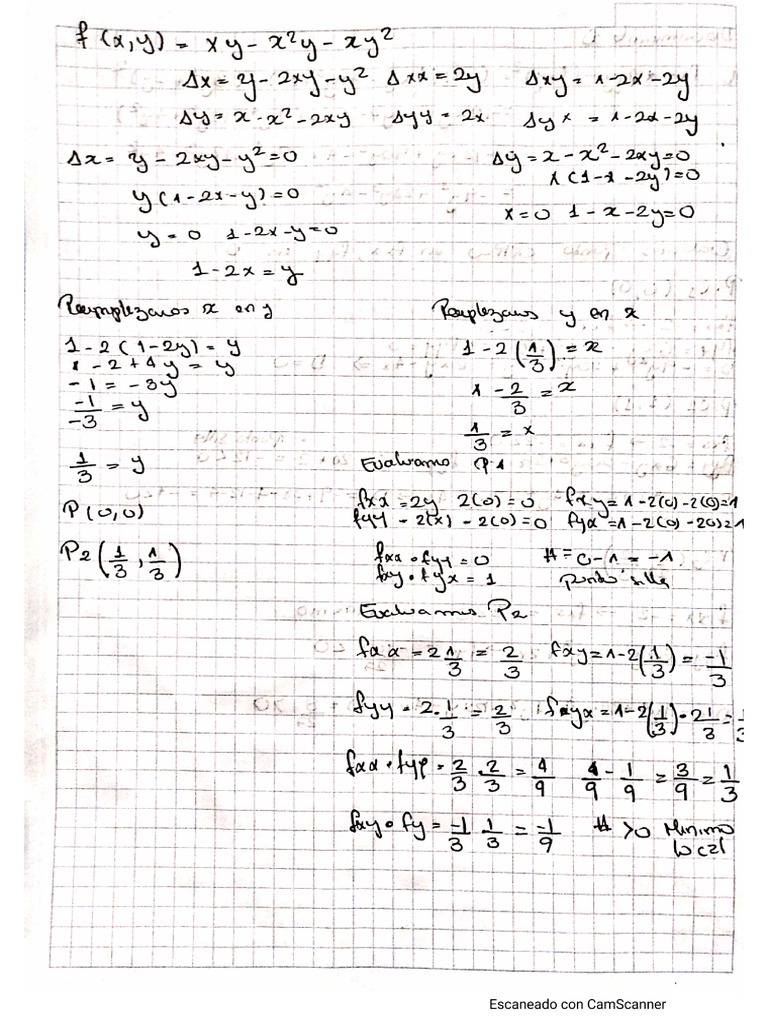 f (x,y) = xy - x²y - xy²
Δx = y - 2xy - y² Δxx = 2y Δxy = 1-2x-2y
Δy = x - x² - 2xy Δyy = 2x Δyx = 1-2x-2y
Δx = y - 2xy - y² = 0 Δy = x - x² - 2xy = 0
y(1-2x-y) = 0 x(1-x-2y) = 0
y = 0 1-2x-y = 0 x = 0 1-x-2y = 0
1-2x = y
Reemplezamos x en y Remplezamos y en x
1-2(1-2y) = y 1-2(1/3) = x
1-2+4y = y 1 - 2/3 = x
-1 = -3y
-1/-3 = y 1/3 = x
1/3 = y Evaluamos P1
P(0,0) fxx = 2y 2(0) = 0 fxy = 1-2(0)-2(0) = 1
fyy - 2(x) - 2(0) = 0 fyx = 1-2(0)-2(0) = 1
P2(1/3, 1/3) fxx • fyy = 0 H = 0-1 = -1
fxy • fyx = 1 punto silla
Evaluamos P2
fxx = 2 1/3 = 2/3 fxy = 1-2(1/3) = -1/3
fyy = 2·1/3 = 2/3 fxyx = 1-2(1/3)·2 1/3 =
fxx • fyy = 2/3 · 2/3 = 4/9 4/9 - 1/9 = 3/9 = 1/3
fxy • fy = -1/3 1/3 = -1/9 H >0 Minimo
local
Escaneado con CamScanner